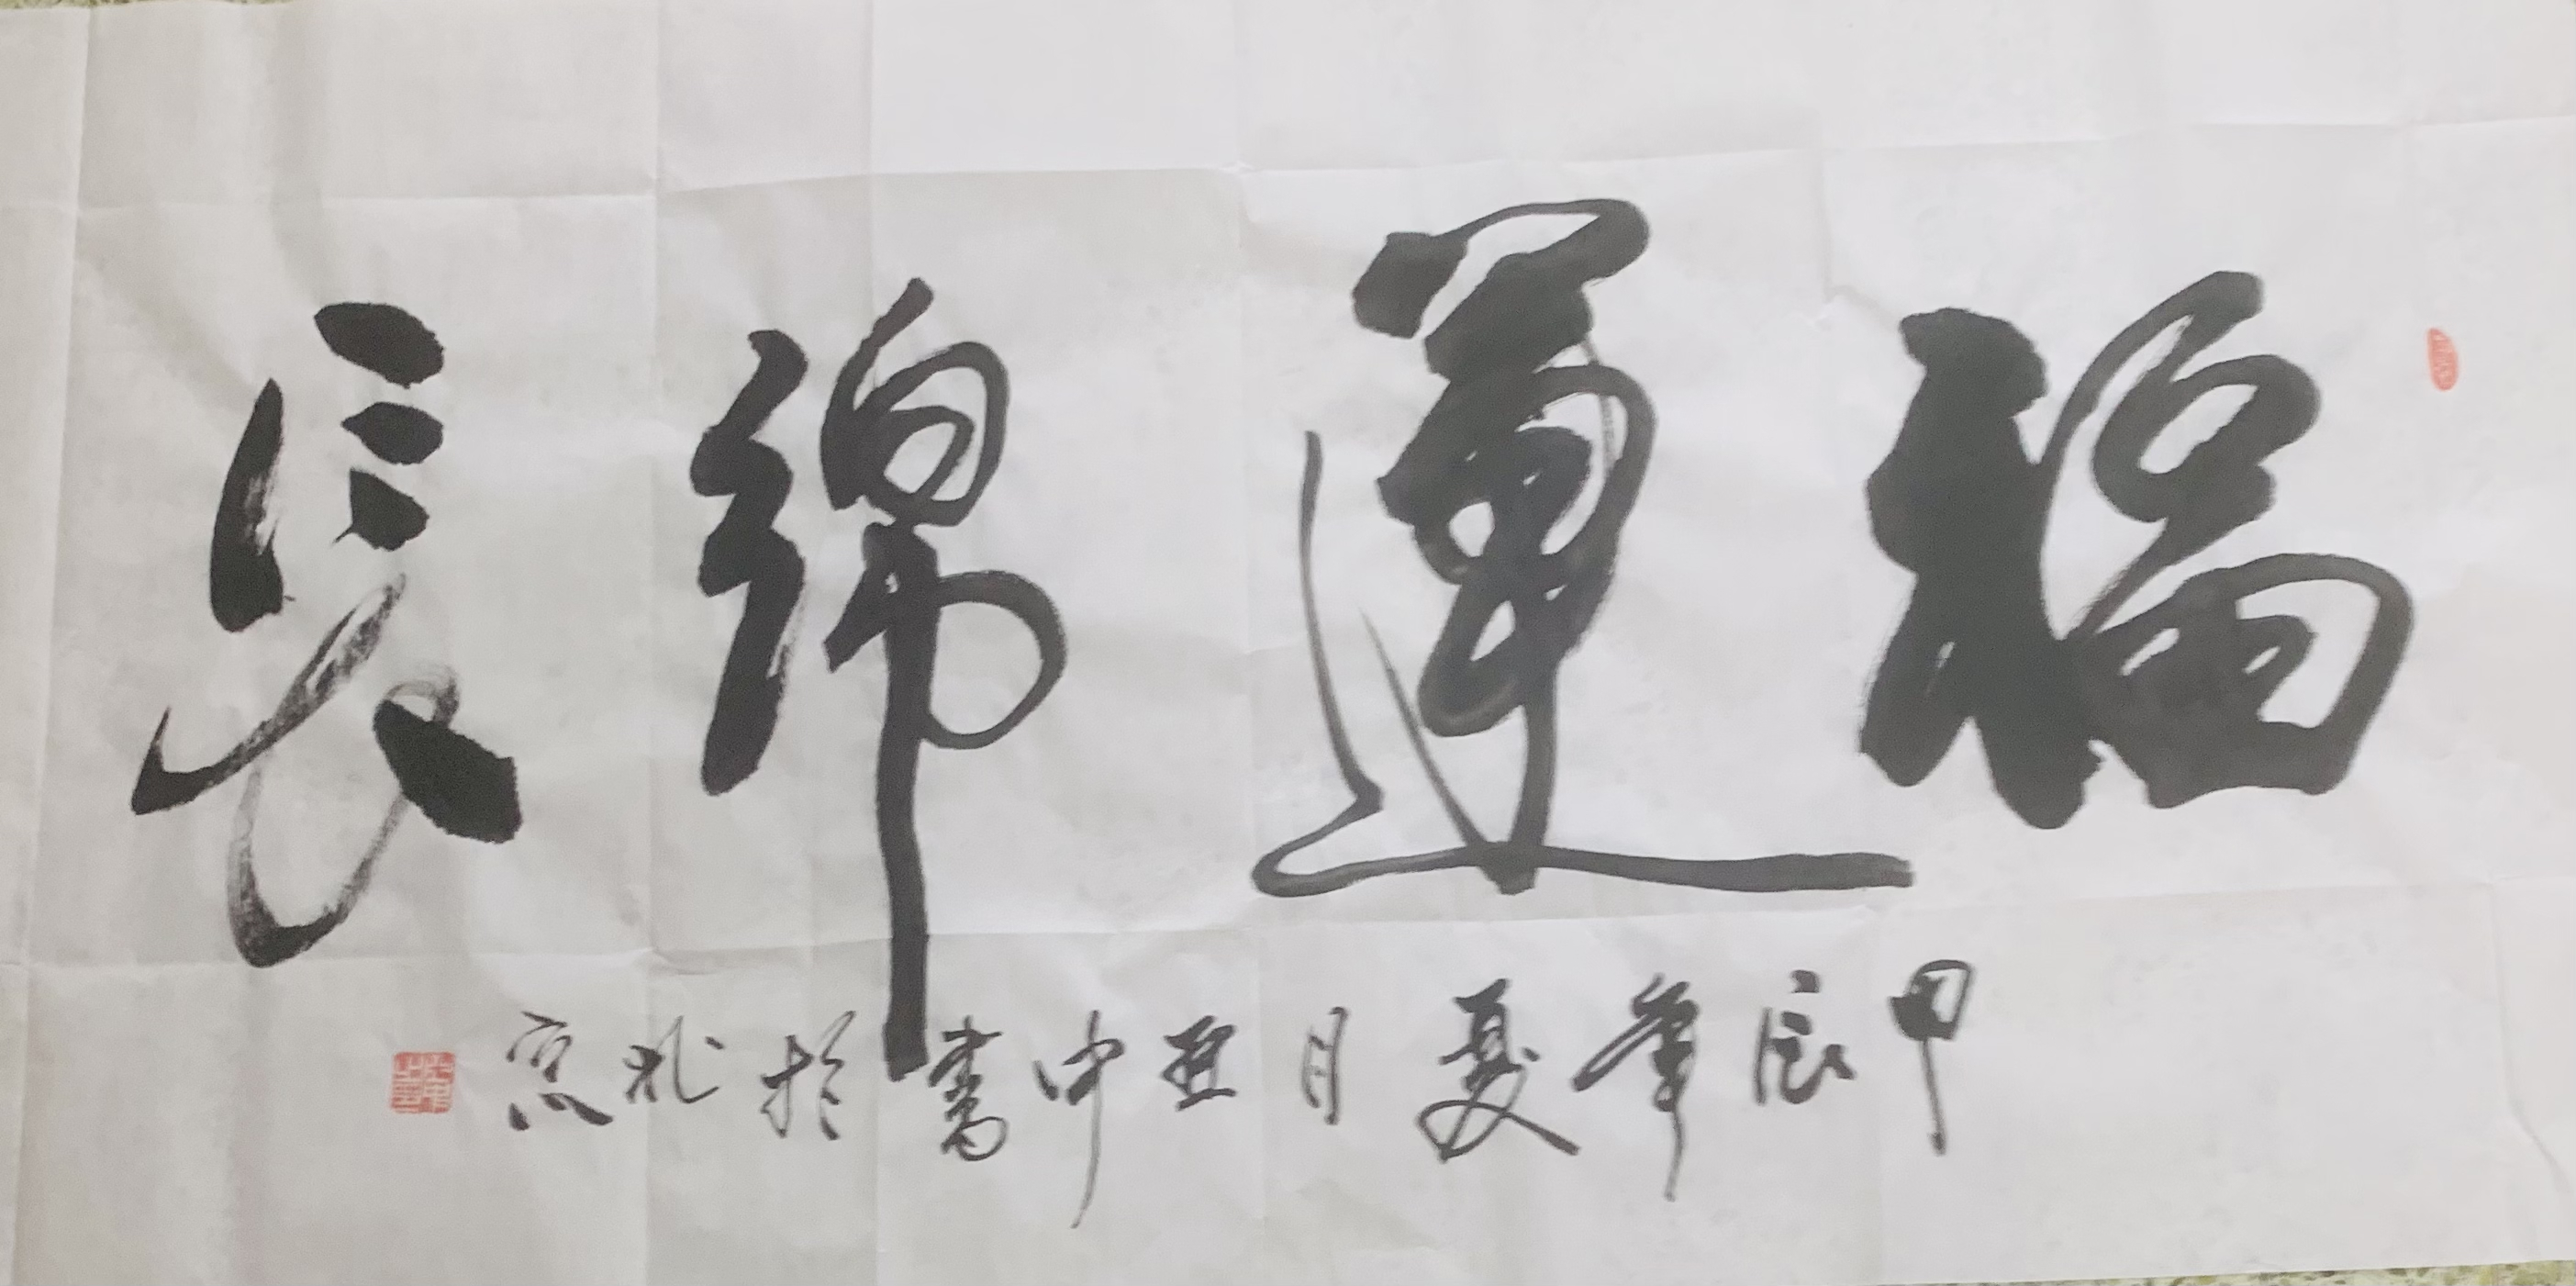 福運綿長
甲辰年夏月亞中書於北京